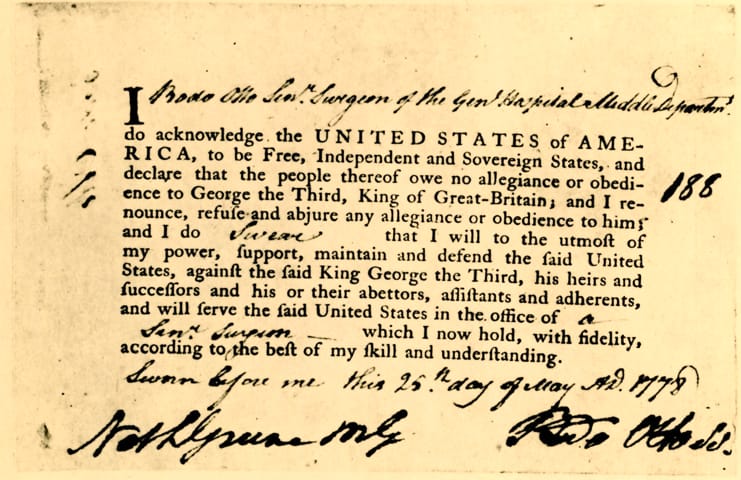 I Bodo Otto Senr. Surgeon of the Genl. Hospital Middle Departmt.
do acknowledge the UNITED STATES of AME-
RICA, to be Free, Independent and Sovereign States, and
declare that the people thereof owe no allegiance or obedi-
ence to George the Third, King of Great-Britain; and I re-
nounce, refuſe and abjure any allegiance or obedience to him;
and I do Swear that I will to the utmoſt of
my power, ſupport, maintain and defend the ſaid United
States, againſt the ſaid King George the Third, his heirs and
ſucceſſors and his or their abettors, aſſiſtants and adherents,
and will ſerve the ſaid United States in the office of a
Senr. Surgeon which I now hold, with fidelity,
according to the beſt of my ſkill and underſtanding.
Sworn before me this 25th day of May AD. 1778
Nathl Greene MG
Bodo Otto SS.
188